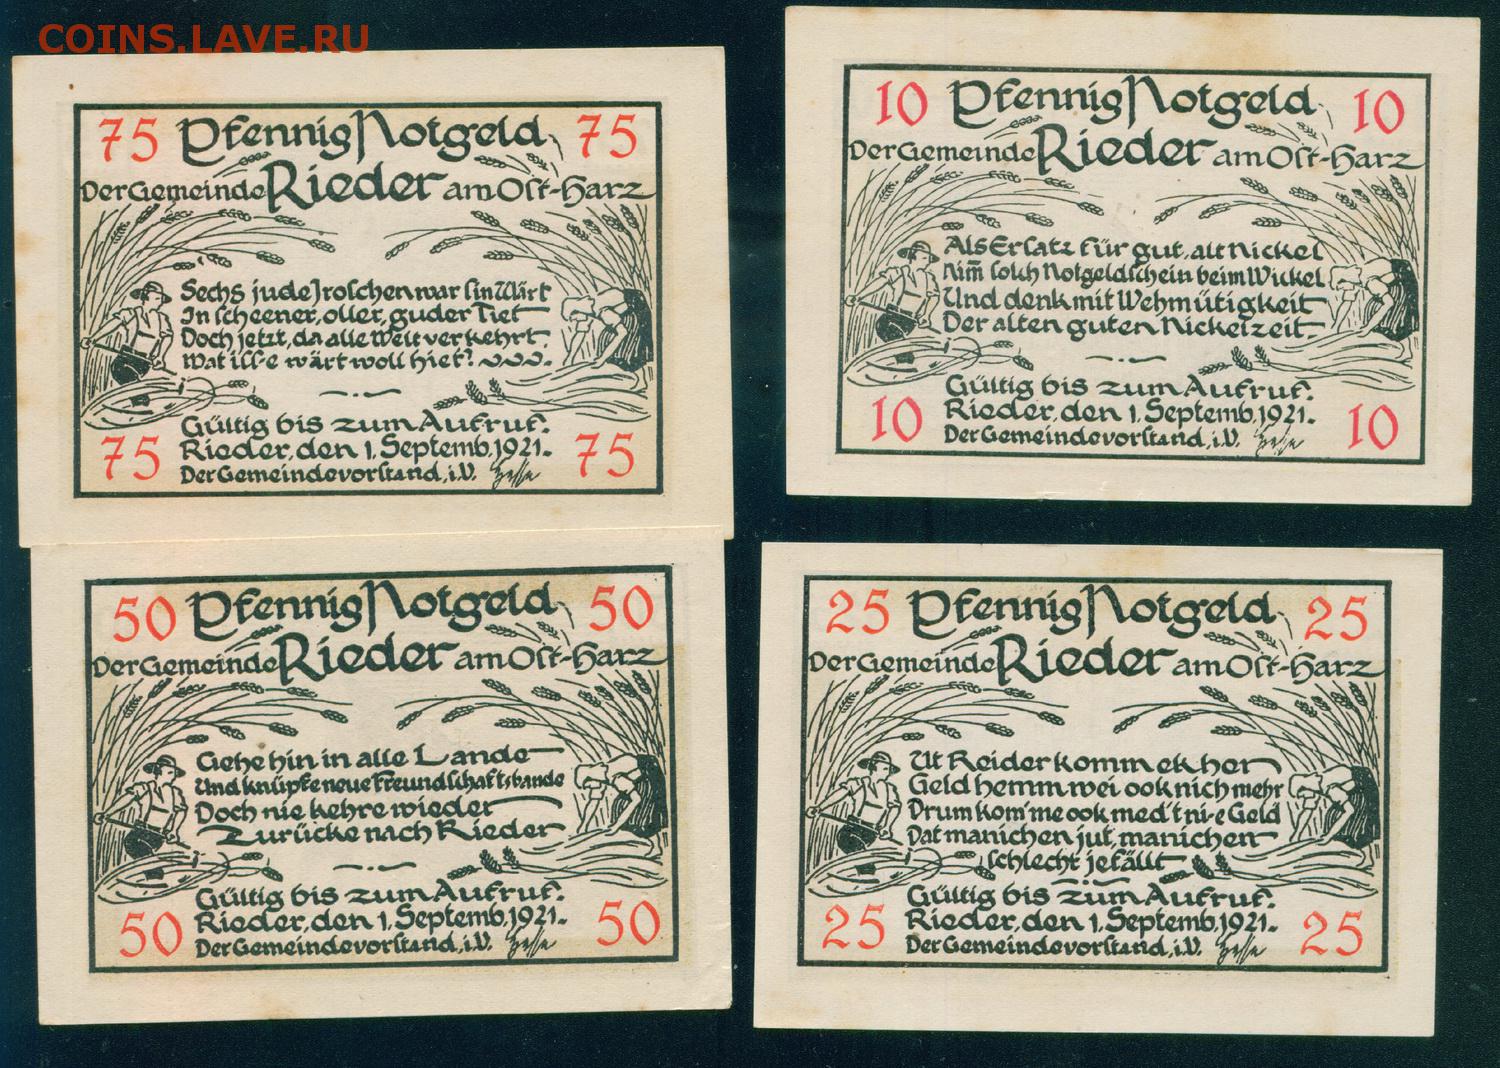 COINS.LAVE.RU
75 Pfennig Notgeld 75
Der Gemeinde Rieder am Ost-Harz
Sechs jude Jroschen war sin Wärt
In scheener, oller, guder Tiet
Doch jetzt, da alle Welt verkehrt
Wat is's-e wärt woll hiet?
Gültig bis zum Aufruf.
Rieder, den 1. Septemb. 1921.
75 Der Gemeindevorstand, i.V. 75
10 Pfennig Notgeld 10
Der Gemeinde Rieder am Ost-Harz
Als Ersatz für gut, alt Nickel
Nim̅ solch Notgeldschein beim Wickel
Und denk mit Wehmütigkeit
Der alten guten Nickelzeit
Gültig bis zum Aufruf.
10 Rieder, den 1. Septemb. 1921. 10
Der Gemeindevorstand, i.V.
50 Pfennig Notgeld 50
Der Gemeinde Rieder am Ost-Harz
Gehe hin in alle Lande
Und knüpfe neue Freundschaftsbande
Doch nie kehre wieder
Zurücke nach Rieder
Gültig bis zum Aufruf.
Rieder, den 1. Septemb. 1921.
50 Der Gemeindevorstand, i.V. 50
25 Pfennig Notgeld 25
Der Gemeinde Rieder am Ost-Harz
Ut Reider komm ek her
Geld hemm wei ook nich mehr
Drum kom'me ook med't ni-e Geld
Dat manichen jut, manichen
schlecht jefällt
Gültig bis zum Aufruf.
Rieder, den 1. Septemb. 1921.
25 Der Gemeindevorstand, i.V. 25